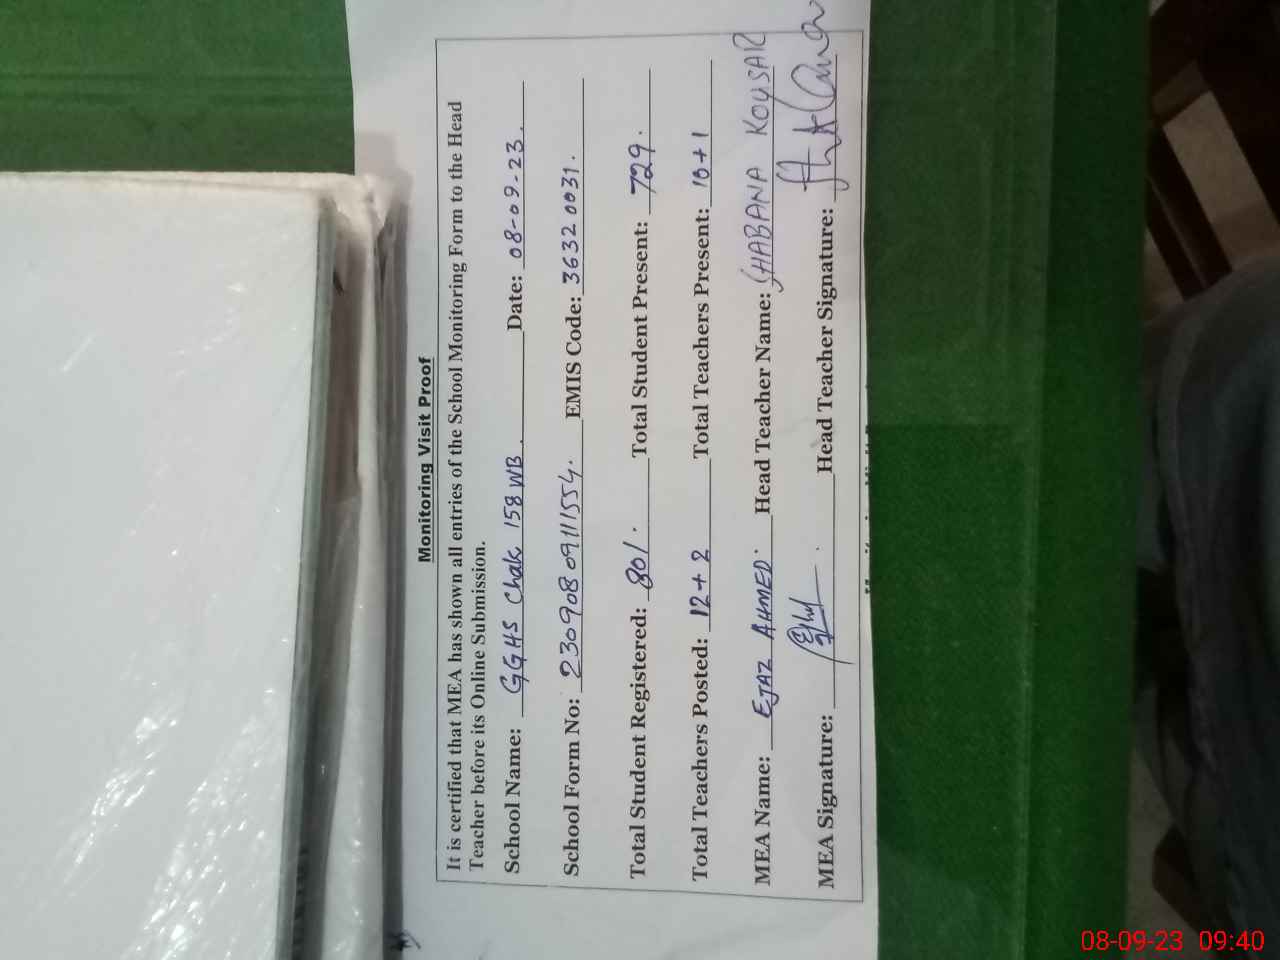 Monitoring Visit Proof
It is certified that MEA has shown all entries of the School Monitoring Form to the Head
Teacher before its Online Submission.
School Name: GGHS Chak 158 WB. Date: 08-09-23.
School Form No: 230908 0911554. EMIS Code: 3632 0031.
Total Student Registered: 801. Total Student Present: 729.
Total Teachers Posted: 12+2 Total Teachers Present: 10+1
MEA Name: EJAZ AHMED. Head Teacher Name: SHABANA KOUSAR
MEA Signature: Head Teacher Signature:
08-09-23 09:40